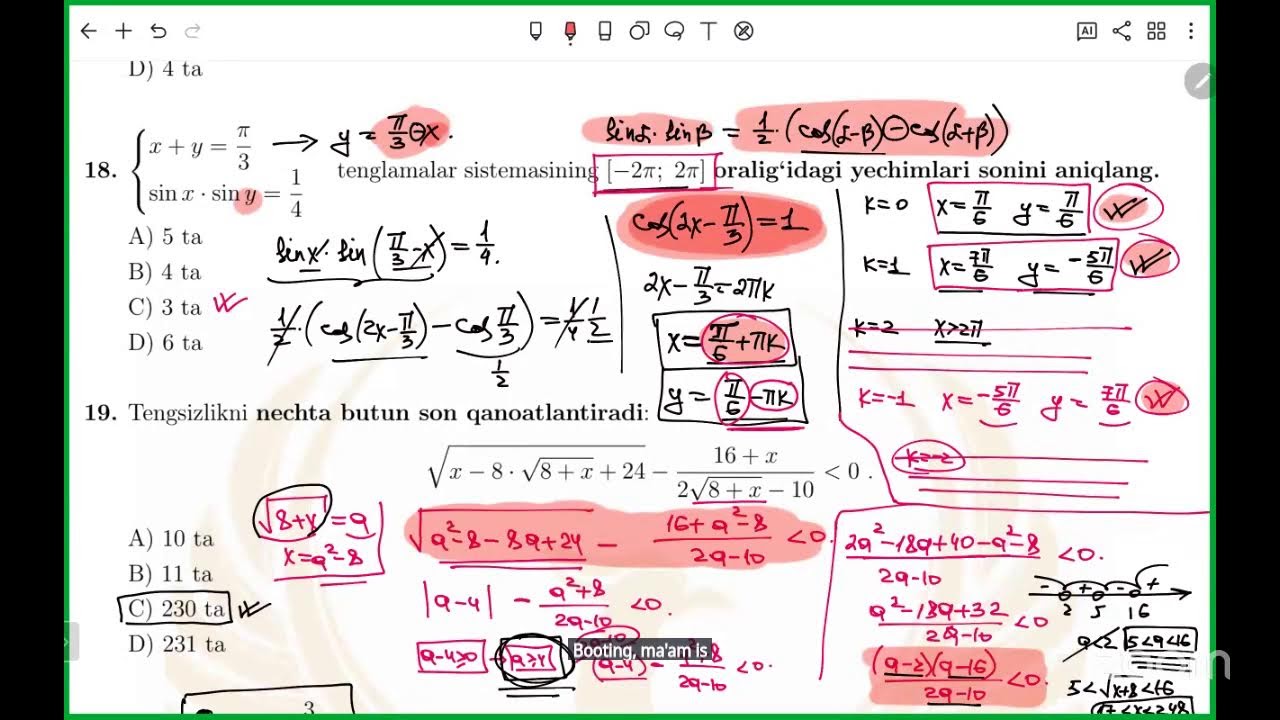 AI
D) 4 ta
18. { x + y = π/3 → y = π/3 - x. sinα · sinβ = 1/2 · (cos(α-β) - cos(α+β))
sin x · sin y = 1/4 tenglamalar sistemasining [−2π; 2π] oralig‘idagi yechimlari sonini aniqlang.
A) 5 ta
B) 4 ta
C) 3 ta
D) 6 ta
sinx · sin(π/3 - x) = 1/4.
1/2 · (cos(2x - π/3) - cos π/3) = 1/4 1/2
1/2
cos(2x - π/3) = 1
2x - π/3 = 2πk
x = π/6 + πk
y = π/6 - πk
k=0 x = π/6 y = π/6
k=1 x = 7π/6 y = -5π/6
k=2 x>2π
k=-1 x = -5π/6 y = 7π/6
k=-2
19. Tengsizlikni nechta butun son qanoatlantiradi:
√(x − 8 · √(8 + x) + 24) − (16 + x)/(2√(8 + x) − 10) < 0 .
A) 10 ta
B) 11 ta
C) 230 ta
D) 231 ta
√(8+x) = a
x = a²-8
√(a²-8-8a+24) - (16+a²-8)/(2a-10) < 0.
|a-4| - (a²+8)/(2a-10) < 0.
a-4≥0 a≥4 (a-4) - /(2a-10) < 0.
Booting, ma'am is
(2a²-18a+40-a²-8)/(2a-10) < 0.
(a²-18a+32)/(2a-10) < 0
(a-2)(a-16)/(2a-10) < 0.
- + - +
2 5 16
a<2 5<a<16
5<√(x+8)<16
17<x<248
3